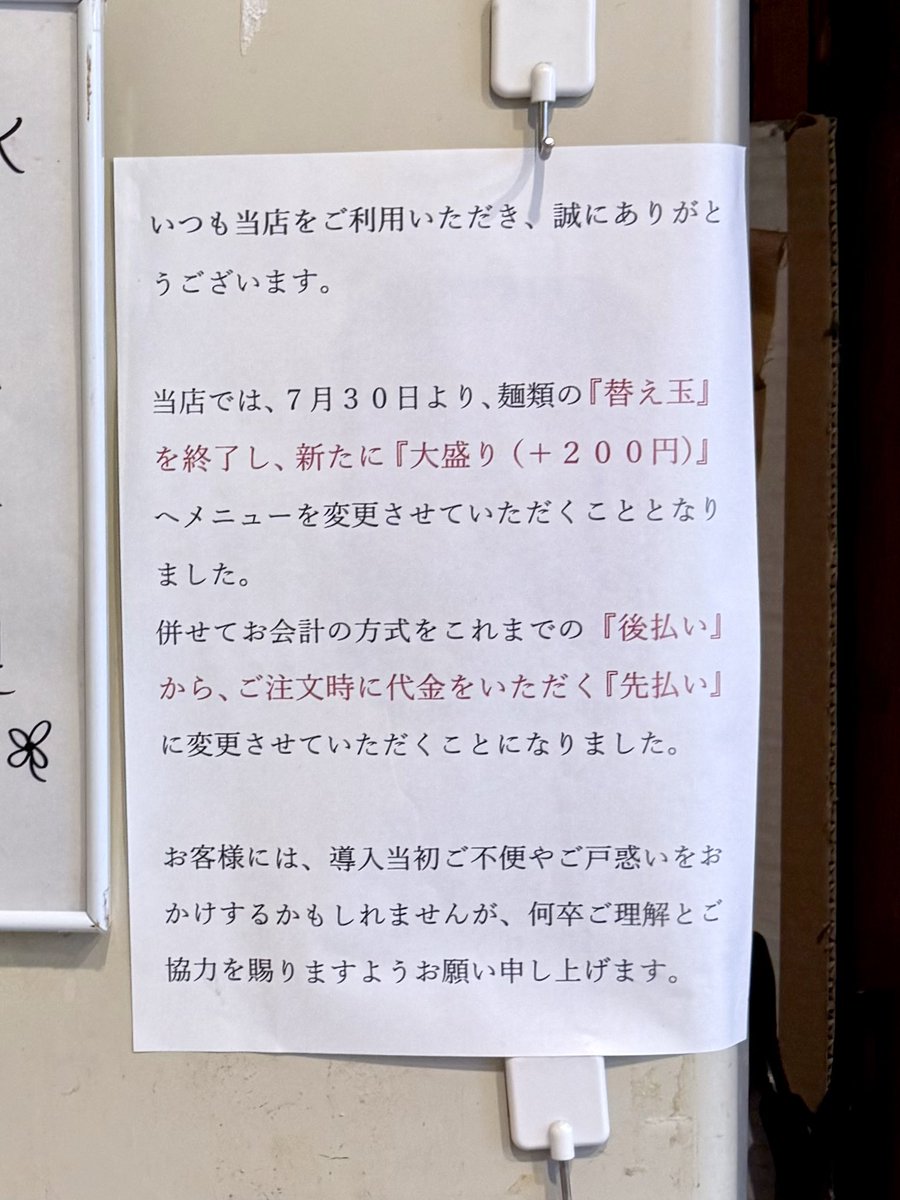 いつも当店をご利用いただき、誠にありがと
うございます。
当店では、7月30日より、麺類の『替え玉』
を終了し、新たに『大盛り(+200円)』
へメニューを変更させていただくこととなり
ました。
併せてお会計の方式をこれまでの『後払い』
から、ご注文時に代金をいただく『先払い』
に変更させていただくことになりました。
お客様には、導入当初ご不便やご戸惑いをお
かけするかもしれませんが、何卒ご理解とご
協力を賜りますようお願い申し上げます。